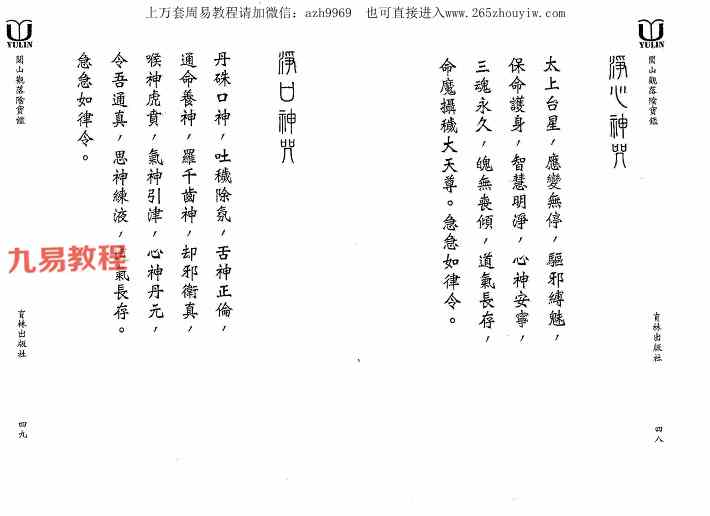 上万套周易教程请加微信：azh9969 也可直接进入www.265zhouyiw.com
YULIN
閭山觀落陰寶鑑
淨心神咒
太上台星，應變無停，驅邪縛魅，
保命護身，智慧明淨，心神安寧，
三魂永久，魄無喪傾，道氣長存，
命魔攝穢大天尊。急急如律令。
育林出版社
四八
YULIN
閭山觀落陰寶鑑
淨口神咒
丹硃口神，吐穢除氛，舌神正倫，
通命養神，羅千齒神，却邪衛真，
喉神虎賁，氣神引津，心神丹元，
令吾通真，思神練液，氣長存。
急急如律令。
九易教程
育林出版社
四九